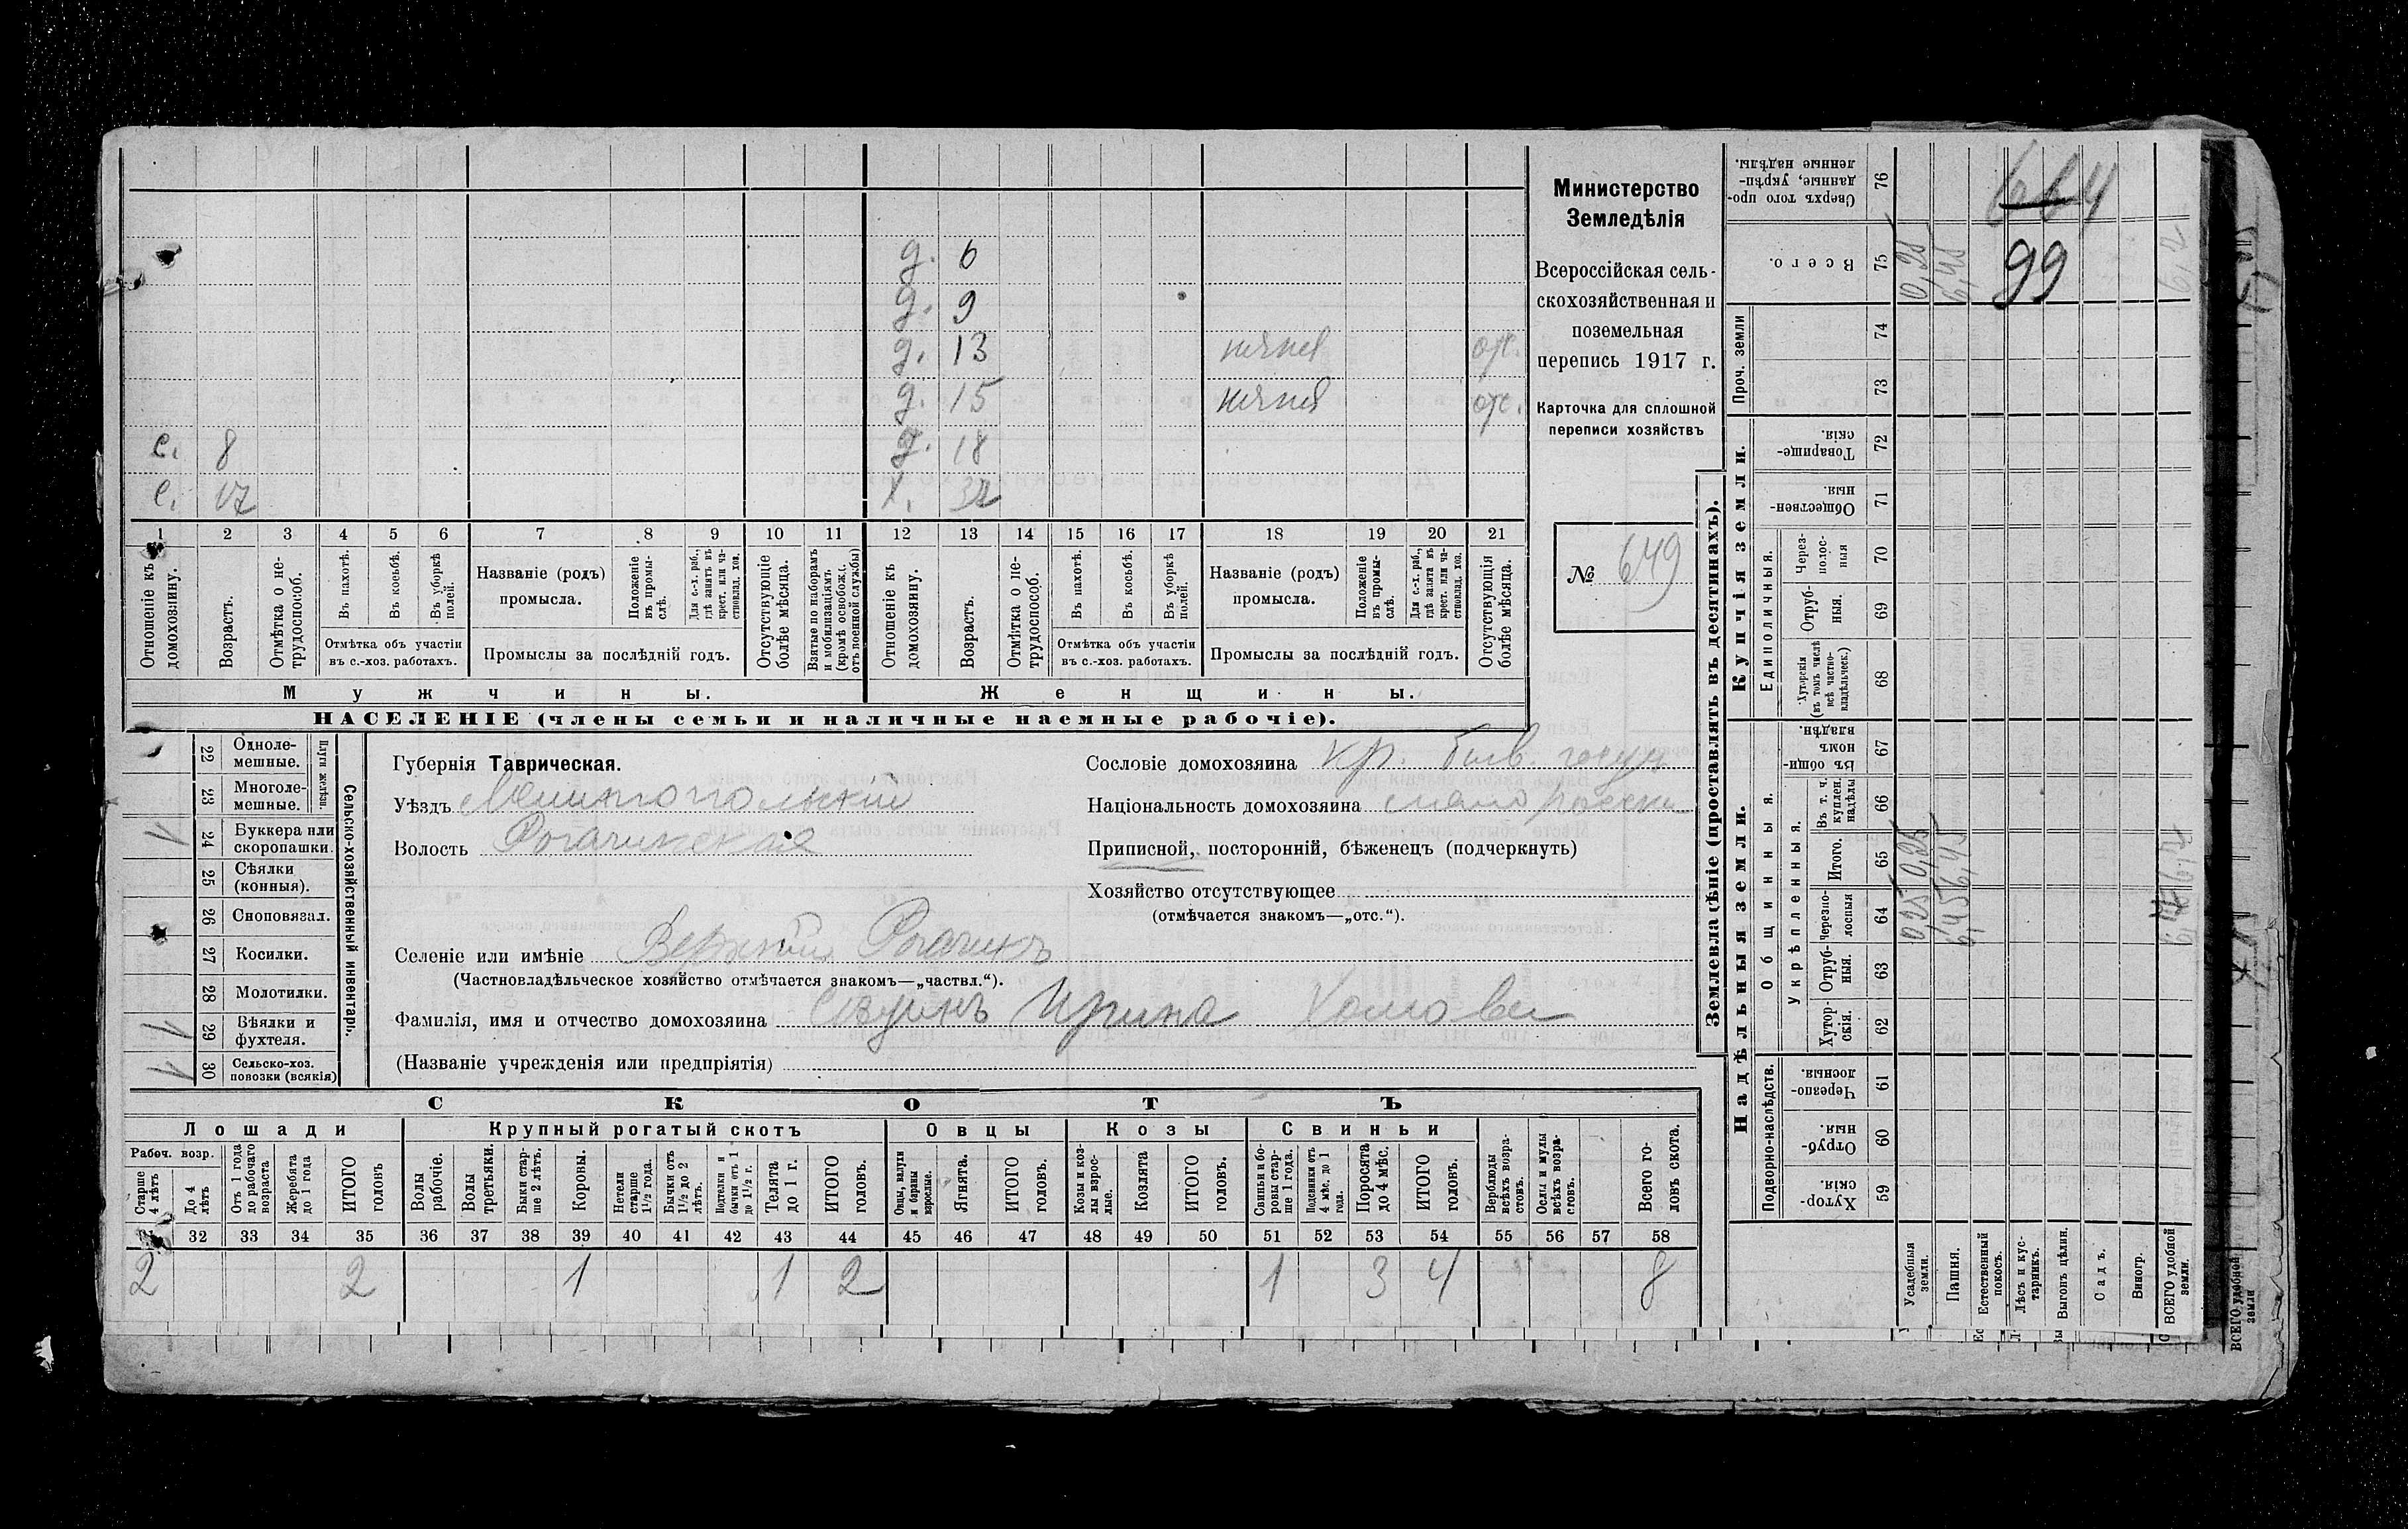 Министерство
Земледѣлія
Всероссійская сель-
скохозяйственная и
поземельная
перепись 1917 г.
Карточка для сплошной
переписи хозяйствъ
№ 649
д. 6
д. 9
д. 13 няня отс.
д. 15 няня отс.
с. 8 д. 18
с. 17 х.
1 2 3 4 5 6 7 8 9 10 11 12 13 14 15 16 17 18 19 20 21
Отношеніе къ домохозяину.
Возрастъ.
Отмѣтка о не-трудоспособ.
Въ пахотѣ.
Въ косьбѣ.
Въ уборкѣ полей.
Отмѣтка объ участіи
въ с.-хоз. работахъ.
Названіе (родъ)
промысла.
Положеніе въ промы-слѣ.
Для с.-х. раб., гдѣ занятъ въ крест. или ча-стновлад. хоз.
Промыслы за послѣдній годъ.
Отсутствующіе болѣе мѣсяца.
Взятые по наборамъ и мобилизаціямъ (кромѣ освобожд. отъ военной службы)
Отношеніе къ домохозяину.
Возрастъ.
Отмѣтка о не-трудоспособ.
Въ пахотѣ.
Въ косьбѣ.
Въ уборкѣ полей.
Отмѣтка объ участіи
въ с.-хоз. работахъ.
Названіе (родъ)
промысла.
Положеніе въ промы-слѣ.
Для с.-х. раб., гдѣ занята въ крест. или ча-стновлад. хоз.
Промыслы за послѣдній годъ.
Отсутствующія болѣе мѣсяца.
Мужчины. Женщины.
НАСЕЛЕНІЕ (члены семьи и наличные наемные рабочіе).
Сельско-хозяйственный инвентарь.
Плуги желѣзн.
22 Одноле-мешные.
23 Многоле-мешные.
24 Буккера или скоропашки.
25 Сѣялки (конныя).
26 Сноповязал.
27 Косилки.
28 Молотилки.
29 Вѣялки и фухтеля.
30 Сельско-хоз. повозки (всякія)
Губернія Таврическая.
Уѣздъ Мелитопольскій
Волость Рогачикская
Сословіе домохозяина кр. бывш. госуд
Національность домохозяина малоросска
Приписной, посторонній, бѣженецъ (подчеркнуть)
Хозяйство отсутствующее
(отмѣчается знакомъ—„отс.“).
Селеніе или имѣніе Верхній Рогачикъ
(Частновладѣльческое хозяйство отмѣчается знакомъ—„частвл.“).
Фамилія, имя и отчество домохозяина Ирина
(Названіе учрежденія или предпріятія)
СКОТЪ
Лошади Крупный рогатый скотъ Овцы Козы Свиньи
Рабоч. возр.
Старше 4 лѣтъ
До 4 лѣтъ
Отъ 1 года до рабочаго возраста
Жеребята до 1 года
ИТОГО головъ
Волы рабочіе.
Волы третьяки.
Быки стар-ше 2 лѣтъ.
Коровы.
Нетели старше 1½ года.
Бычки отъ 1½ до 2 лѣтъ.
Подтелки и бычки отъ 1 до 1½ г.
Телята до 1 г.
ИТОГО головъ.
Овцы, валухи и бараны взрослые.
Ягнята.
ИТОГО головъ.
Козы и коз-лы взрос-лые.
Козлята
ИТОГО головъ.
Свиньи и бо-ровы стар-ше 1 года.
Подсвинки отъ 4 мѣс. до 1 года.
Поросята до 4 мѣс.
ИТОГО головъ.
Верблюды всѣхъ возра-стовъ.
Ослы и мулы всѣхъ возра-стовъ.
Всего го-ловъ скота.
32 33 34 35 36 37 38 39 40 41 42 43 44 45 46 47 48 49 50 51 52 53 54 55 56 57 58
2 2 1 1 2 1 3 4 8
Землевладѣніе (проставлять въ десятинахъ).
Надѣльныя земли. Купчія земли.
Подворно-наслѣдств.
Общинныя.
Укрѣпленныя.
Единоличныя.
Проч. земли
Хутор-скія. 59
Отруб-ныя. 60
Черезпо-лосныя. 61
Хутор-скія. 62
Отруб-ныя. 63
Черезпо-лосныя 64
Итого. 65
Въ т. ч. куплен. надѣлы 66
Въ общи-номъ владѣн. 67
Хуторскія (въ томъ числѣ всѣ частно-владѣльческ.) 68
Отруб-ныя. 69
Через-полос-ныя 70
Обществен-ныя. 71
Товарище-скія. 72
73
74
Всего. 75
Сверхъ того про-данные, укрѣп-ленные надѣлы. 76
Усадебныя земли. 0,25 0,25 0,25
Пашня. 6,45 6,45 6,45
Естественный покосъ.
Лѣсъ и кус-тарникъ.
Выгонъ цѣлин.
Садъ.
Виногр.
ВСЕГО удобной земли.
99
ВСЕГО удобной земли